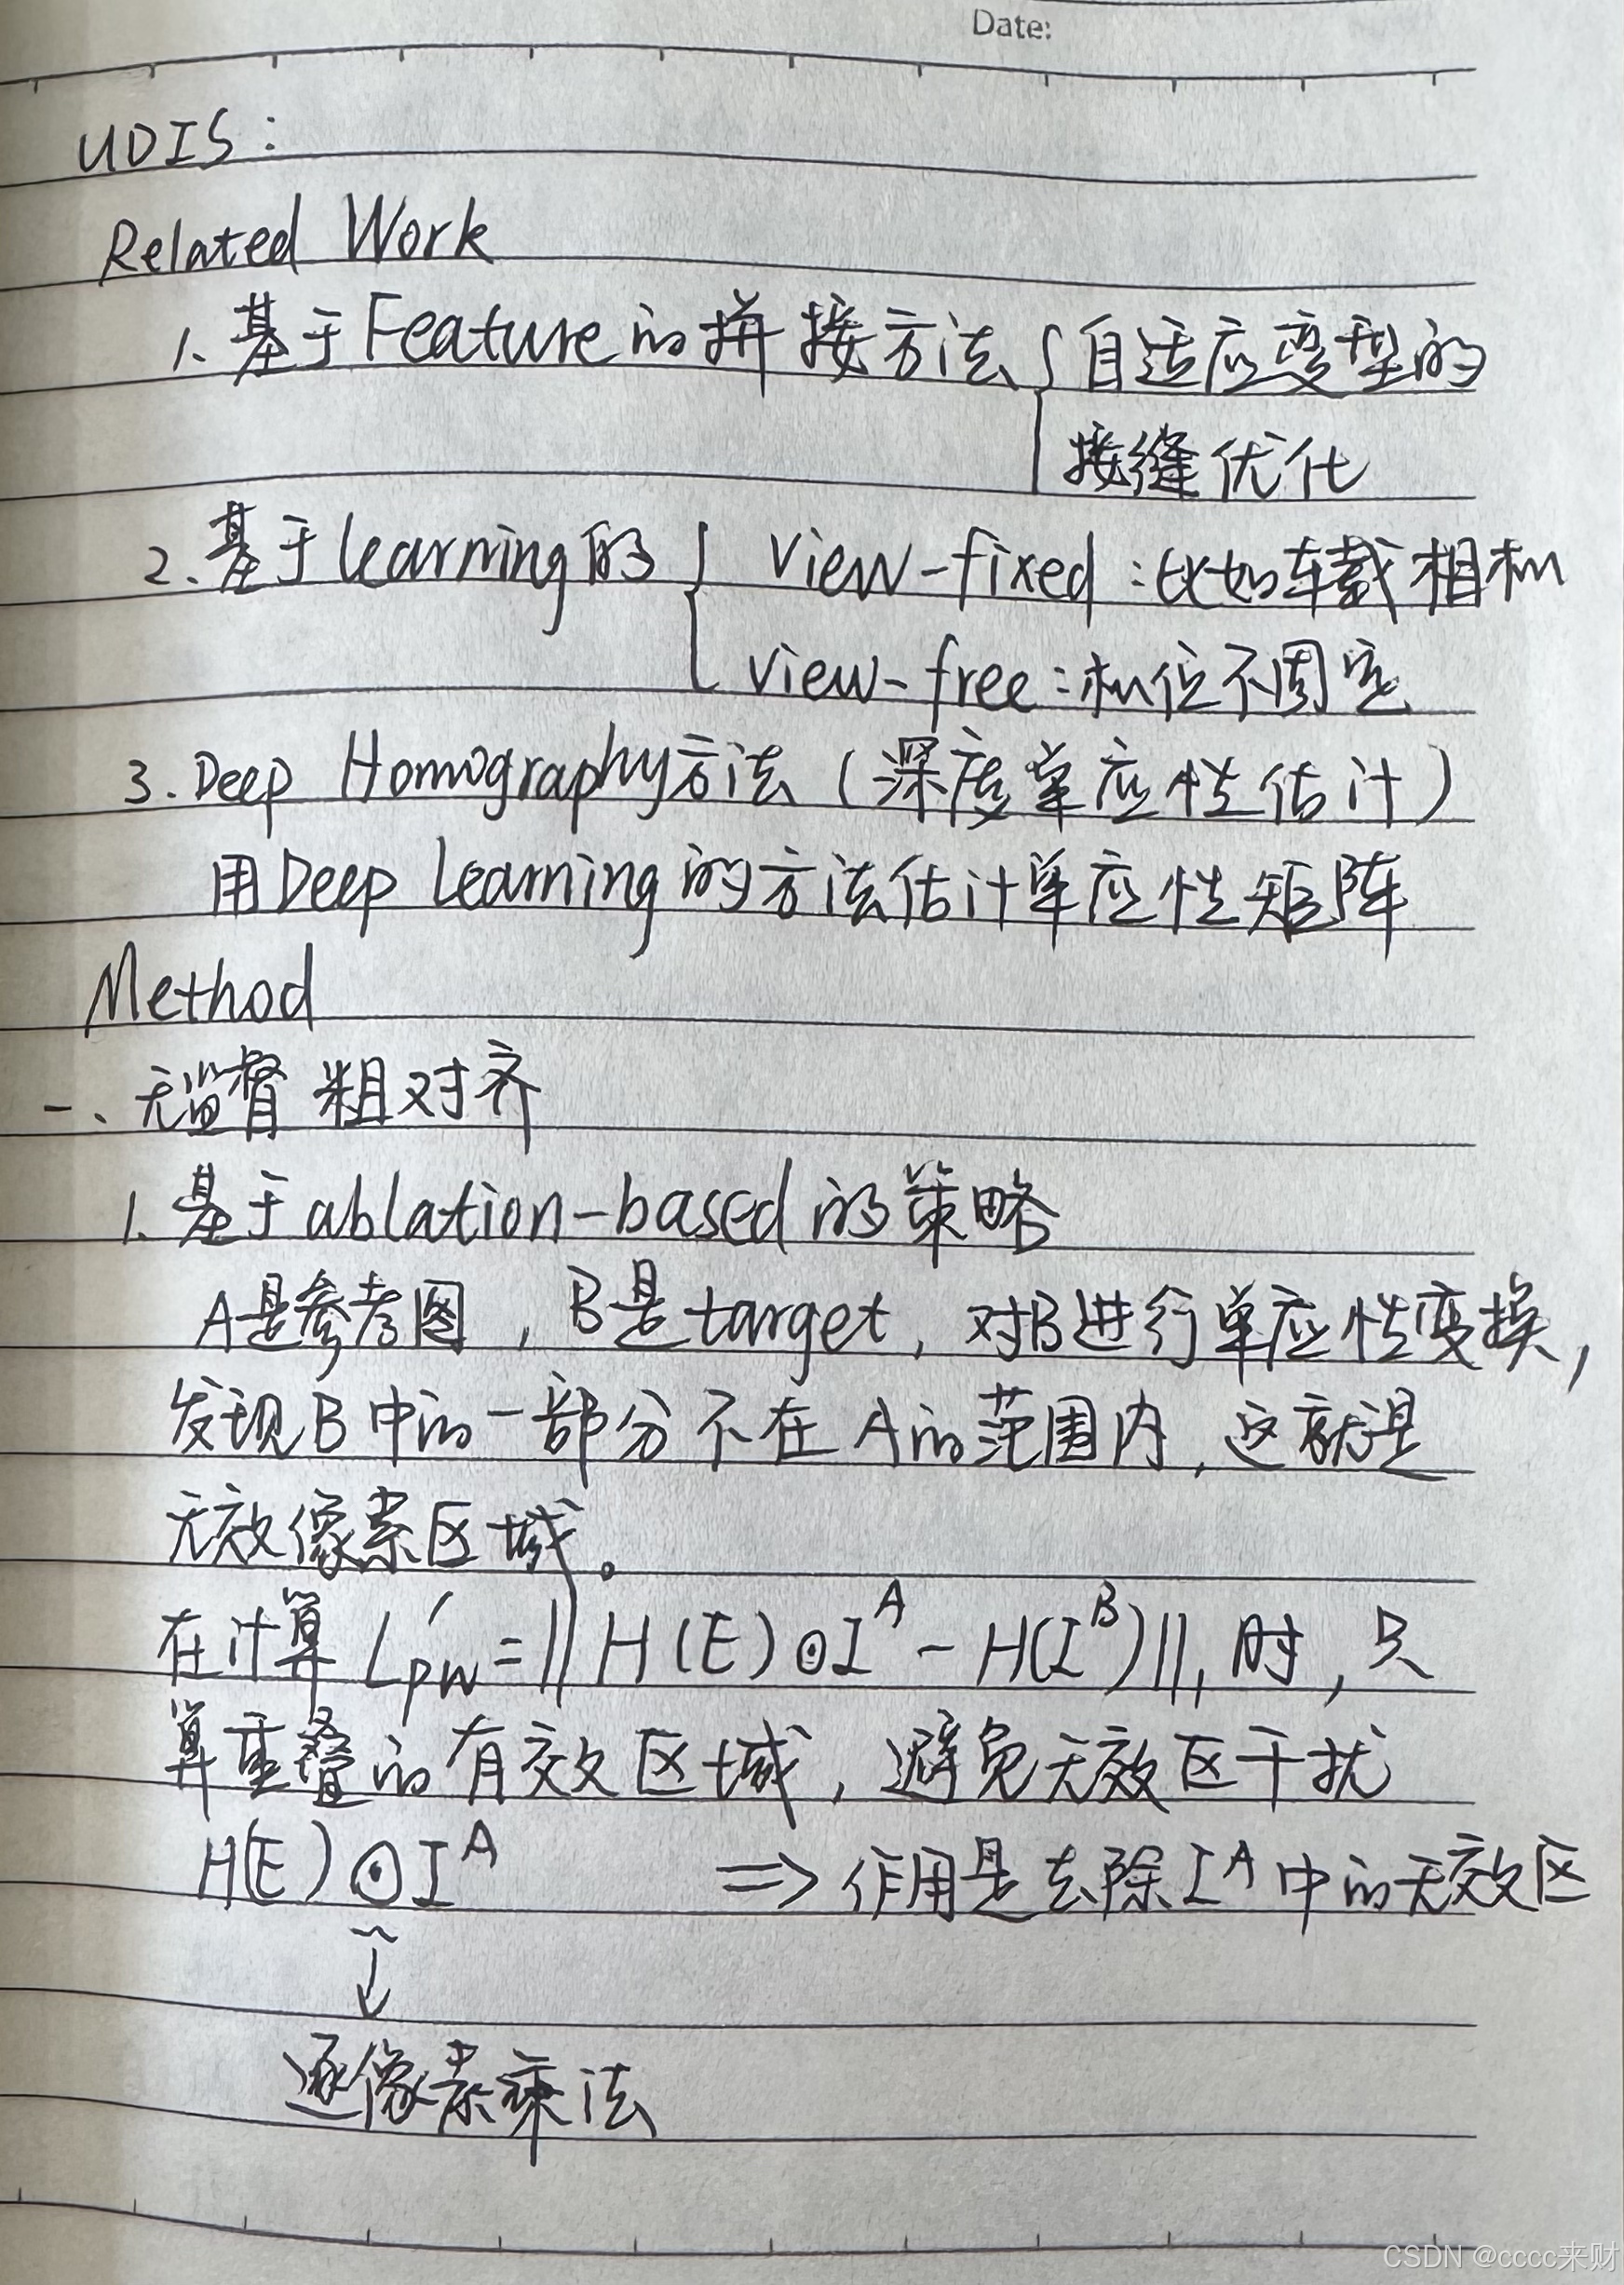 Date:
UDIS:
Related Work
1. 基于Feature的拼接方法 { 自适应变型的
接缝优化
2. 基于learning的 { view-fixed:比如车载相机
view-free:机位不固定
3. Deep Homography方法(深度单应性估计)
用Deep learning的方法估计单应性矩阵
Method
一、无监督粗对齐
1. 基于ablation-based的策略
A是参考图,B是target,对B进行单应性变换,
发现B中的一部分不在A的范围内,这就是
无效像素区域。
在计算 L'pw = || H(E)⊙I^A - H(I^B)||₁ 时,只
算重叠的有效区域,避免无效区干扰
H(E)⊙I^A => 作用是去除I^A中的无效区
↓
逐像素乘法
CSDN @cccc来财